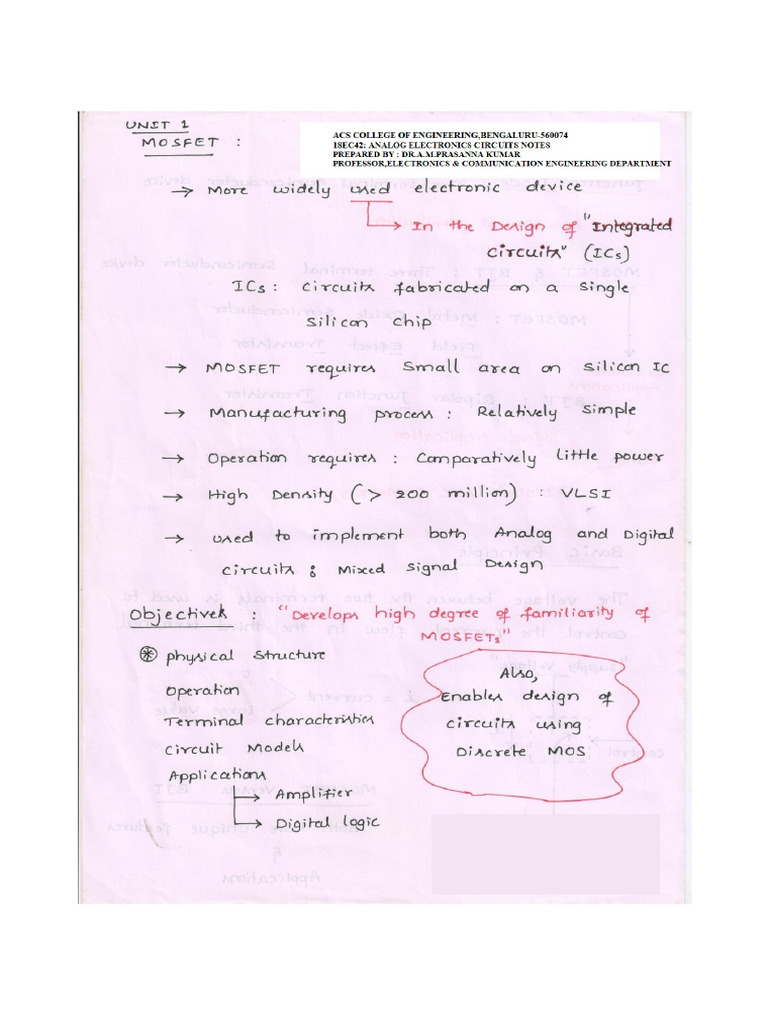 UNIT 1
MOSFET :
ACS COLLEGE OF ENGINEERING,BENGALURU-560074
18EC42: ANALOG ELECTRONICS CIRCUITS NOTES
PREPARED BY : DR.A.M.PRASANNA KUMAR
PROFESSOR,ELECTRONICS & COMMUNICATION ENGINEERING DEPARTMENT
→ More widely used electronic device
→ In the Design of "Integrated
Circuits" (ICs)
ICs : Circuits fabricated on a Single
Silicon Chip
→ MOSFET requires Small area on Silicon IC
→ Manufacturing process : Relatively Simple
→ Operation requires : Comparatively little power
→ High Density (> 200 million) : VLSI
→ used to implement both Analog and Digital
Circuits ; Mixed Signal Design
Objectives : "Develops high degree of familiarity of
MOSFETs"
* Physical Structure
Operation
Terminal characteristics
Circuit Models
Applications
→ Amplifier
→ Digital logic
Also,
Enables design of
circuits using
Discrete MOS